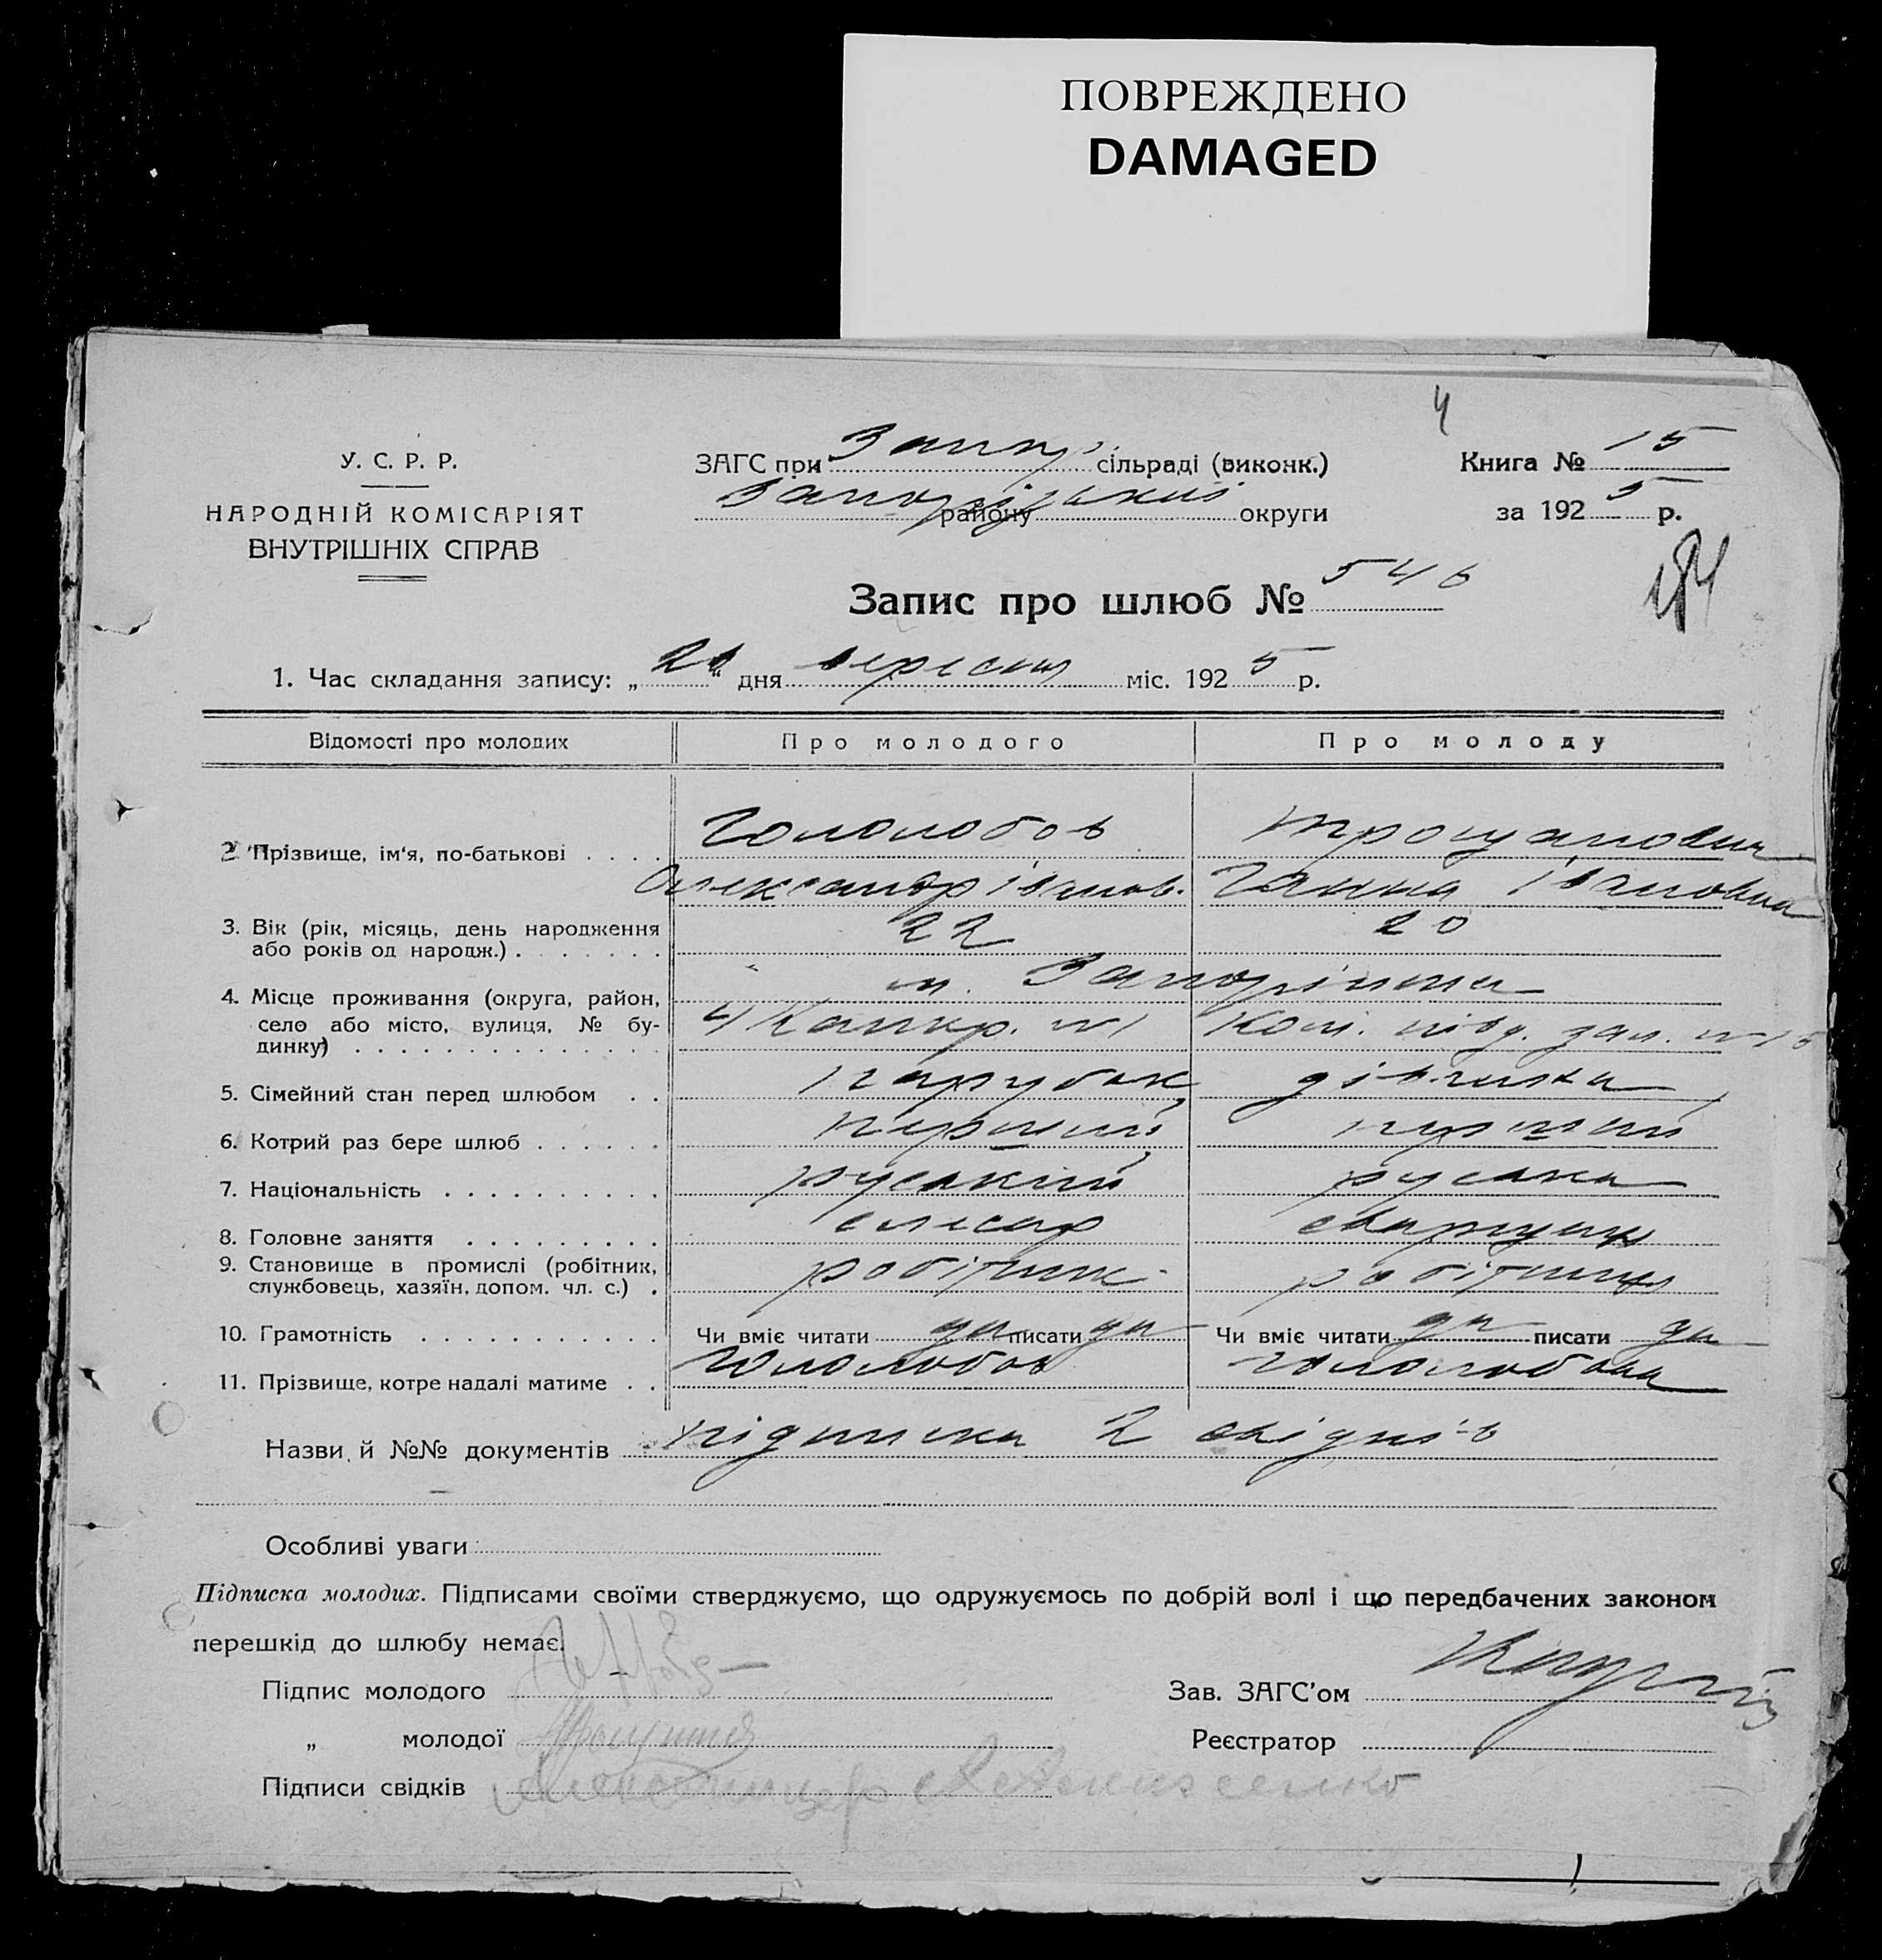 ПОВРЕЖДЕНО
DAMAGED
4
У. С. Р. Р.
НАРОДНІЙ КОМІСАРІЯТ
ВНУТРІШНІХ СПРАВ
ЗАГС при сільраді (виконк.)
району округи
Книга № 15
за 192 5 р.
Запис про шлюб № 546
1. Час складання запису: „ “ дня вересня міс. 192 5 р.
Відомості про молодих Про молодого Про молоду
2 Прізвище, ім'я, по-батькові . . . . Гололобов
Олександр Іванов. Ганна Івановна
3. Вік (рік, місяць, день народження
або років од народж.) . . . . . . . 22 20
м. Запоріжжа
4. Місце проживання (округа, район,
село або місто, вулиця, № бу-
динку) . . . . . . . . . . . . . .
5. Сімейний стан перед шлюбом . . парубок дівчина
6. Котрий раз бере шлюб . . . . . . перший перший
7. Національність . . . . . . . . . . руський руська
8. Головне заняття . . . . . . . . . слюсар
9. Становище в промислі (робітник,
службовець, хазяїн, допом. чл. с.) . робітник робітниця
10. Грамотність . . . . . . . . . . . Чи вміє читати да писати да Чи вміє читати да писати да
11. Прізвище, котре надалі матиме . . Гололобов Гололобова
Назви й №№ документів підписка 2 свідків
Особливі уваги
Підписка молодих. Підписами своїми стверджуємо, що одружуємось по добрій волі і що передбачених законом
перешкід до шлюбу немає.
Підпис молодого
Зав. ЗАГС'ом
„ молодої
Реєстратор
Підписи свідків